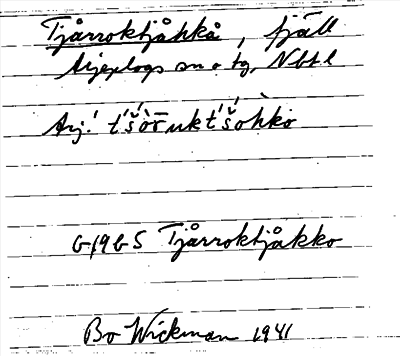 Tjårroktjåhkå, fjäll
Arjeplogs sn o tg, Nbtl
Arj. t́š́ò̄rukt́š́ohkò
G 19 G S Tjårroktjåkko
Bo Wickman 1941